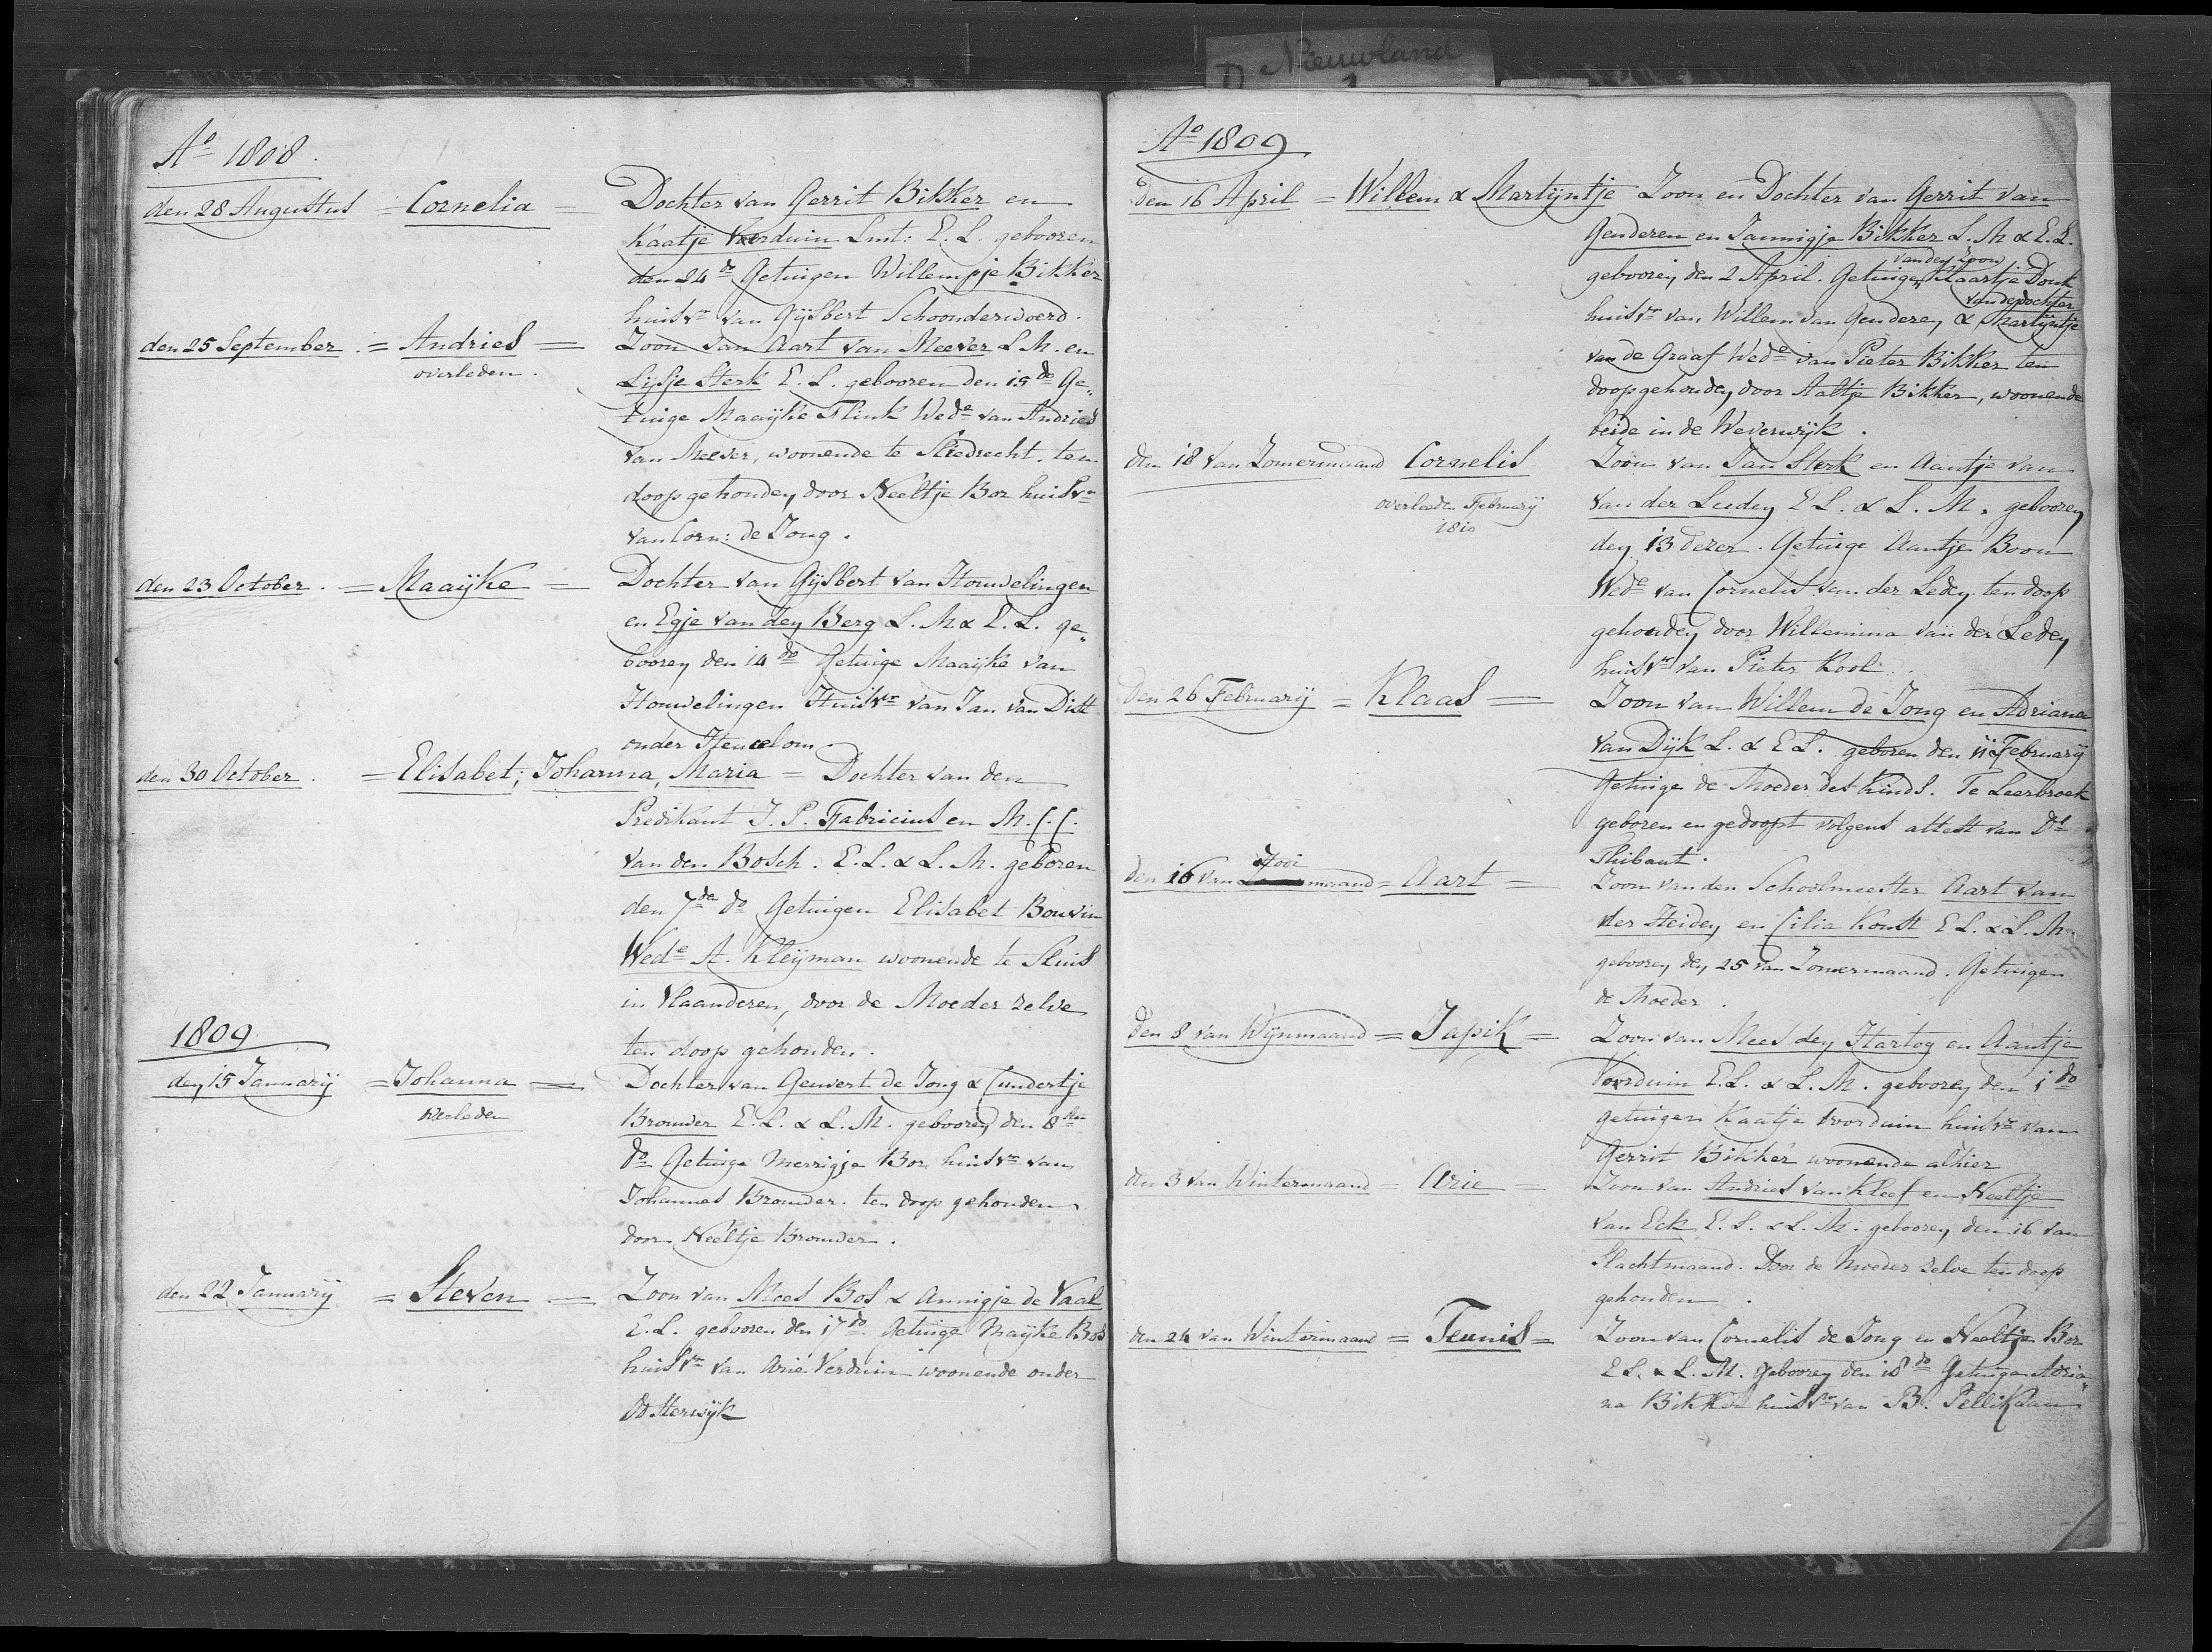 D Nieuwland
1
Aº 1808.
den 28 Augustus = Cornelia = Dochter van Gerrit Bikker en
Kaatje Voorduin Lmt: E. L. gebooren
den 24 dº Getuigen Willempje Bikker
huisvr van Gijsbert Schoonderwoerd.
den 25 September. = Andries = Zoon van Aart van Meever L M. en
overleden.
Lijsje Sterk E. L. gebooren den 15 dº Ge„
tuige Maaijke Flink Wede van Andries
van Meever, woonende te Sliedrecht. ten
doop gehouden door Neeltje Bor huisvr
van Corn: de Jong.
den 23 October. = Maaijke = Dochter van Gijsbert van Houwelingen
en Egje van den Berg L. M & E. L. ge„
booren den 14 dº Getuige Maaijke van
Houwelingen Huisvr van Jan van Dist
onder Heucelom.
den 30 October. = Elisabet, Johanna, Maria = Dochter van den
Predikant J. P. Fabricius en M. C. C.
van den Bosch. E. L. & L. M. geboren
den 7de dº Getuigen Elisabet Bouvin
Wede A. Kleijman woonende te Sluis
in Vlaanderen, door de Moeder zelve
ten doop gehouden.
1809
den 15 Januarij = Johanna = Dochter van Geuvert de Jong & Cundertje
overleden
Brouwer E. L. & L. M. gebooren den 8ste
dº Getuige Merrigje Bor huisvr van
Johannes Brouwer. ten doop gehouden
door Neeltje Brouwer.
den 22 Januarij = Steven = Zoon van Moes Bos & Annigje de Vaal
E. L. gebooren den 17 dº Getuige Maijke Bos
huisvr van Arie Verduin woonende onder
Oosterwijk
Aº 1809
den 16 April = Willem & Martijntje Zoon en Dochter van Gerrit van
Genderen en Jannigje Bikker L. M & E. L.
van den Zoon
gebooren den 2 April. Getuigen Klaartje Donk
van de dochter
huisvr van Willem van Genderen & Martijntje
van de Graaf Wede van Pieter Bikker ten
doop gehouden door Aaltje Bikker, woonende
beide in de Weverwijk.
den 18 van Zomermaand Cornelis Zoon van Jan Sterk en Aantje van
overleden Februarij
1810
van der Leeden E L. & L. M. gebooren
den 13 dezer. Getuige Aantje Boon
Wede van Cornelis van der Leden ten doop
gehouden door Willemina van der Leden
huisvr van Pieter Kool.
den 26 Februarij = Klaas = Zoon van Willem de Jong en Adriana
van Dijk L. & E L. geboren den 11 Februarij
Getuige de Moeder des Kinds. Te Leerbroek
geboren en gedoopt volgens attest van Ds
Thibaut.
Hooi
den 16 van maand = Aart = Zoon van den Schoolmeester Aart van
der Heiden en Cilia Konst E L. & L. M.
gebooren den 25 van Zomermaand. Getuigen
de Moeder.
den 8 van Wijnmaand = Japik = Zoon van Mees den Hartog en Aantje
Voorduin E. L. & L. M. gebooren den 1 dº
getuigen Kaatje Voorduin huisvr van
Gerrit Bikker woonende alhier
den 3 van Wintermaand = Arie = Zoon van Andries van Kleef en Neeltje
van Eck E. L. & L. M. gebooren den 16 van
Slachtmaand. Door de Moeder zelve ten doop
gehouden.
den 24 van Wintermaand = Teunis = Zoon van Cornelis de Jong en Neeltje Bor
E L. & L. M. gebooren den 18 dº Getuigen Adria„
na Bikker huisvr van B. Pellikaan